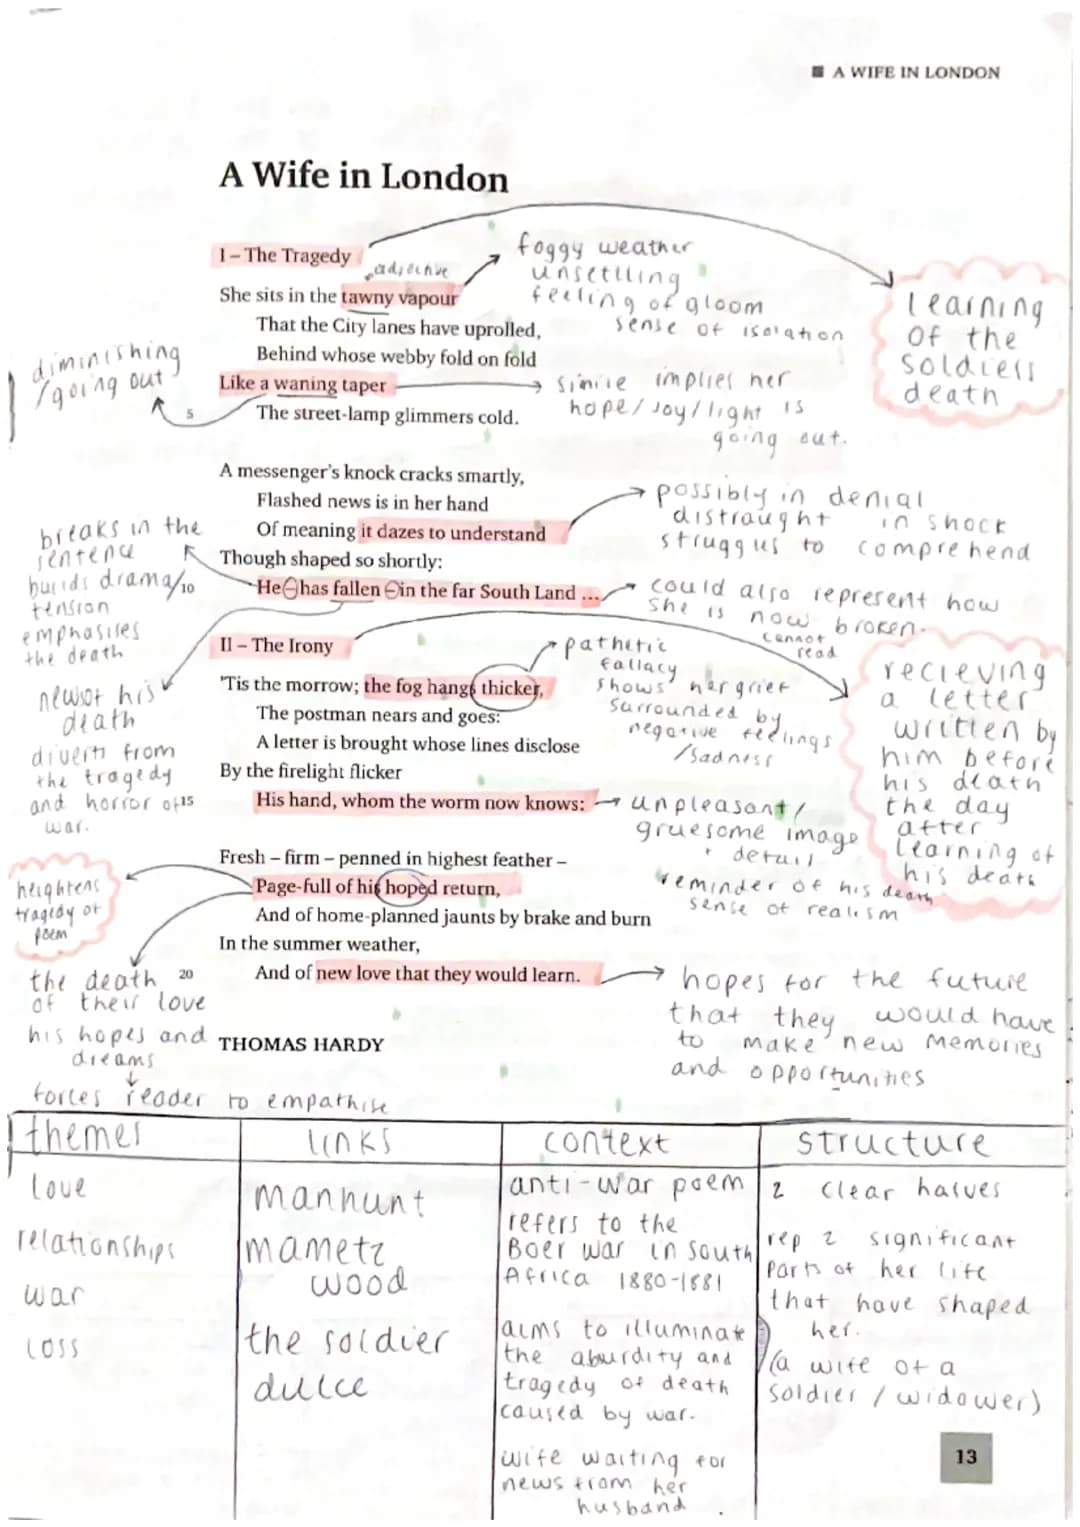 A WIFE IN LONDON
A Wife in London
I – The Tragedy
adjective
She sits in the tawny vapour
That the City lanes have uprolled,
Behind whose webby fold on fold
Like a waning taper
5
The street-lamp glimmers cold.
foggy weather
unsettling
feeling of gloom
sense of isolation
learning
of the
soldiers
death
diminishing
/going out
simile implies her
hope/joy/light is
going out.
A messenger's knock cracks smartly,
Flashed news is in her hand
Of meaning it dazes to understand
Though shaped so shortly:
10
He – has fallen – in the far South Land ...
possibly in denial
distraught in shock
struggles to comprehend
breaks in the
sentence
builds drama/
tension
emphasises
the death
could also represent how
she is now broken.
cannot
read
II – The Irony
'Tis the morrow; the fog hangs thicker,
The postman nears and goes:
A letter is brought whose lines disclose
By the firelight flicker
15
His hand, whom the worm now knows:
pathetic
fallacy
shows her grief
surrounded by
negative feelings
/sadness
recieving
a letter
written by
him before
his death
the day
after
learning of
his death
news of his
death
diverts from
the tragedy
and horror of
war.
unpleasant/
gruesome image
+ detail
reminder of his death
sense of realism
Fresh – firm – penned in highest feather –
Page-full of his hoped return,
And of home-planned jaunts by brake and burn
In the summer weather,
20
And of new love that they would learn.
heightens
tragedy of
poem
the death
of their love
his hopes and
dreams
forces reader to empathise
hopes for the future
that they would have
to make new memories
and opportunities
THOMAS HARDY
themes
love
relationships
war
loss
links
manhunt
mametz
wood
the soldier
dulce
context
anti-war poem
refers to the
Boer war in South
Africa 1880-1881
aims to illuminate
the absurdity and
tragedy of death
caused by war.
wife waiting for
news from her
husband.
structure
2 clear halves
rep 2 significant
parts of her life
that have shaped
her.
(a wife of a
soldier / widower)
13